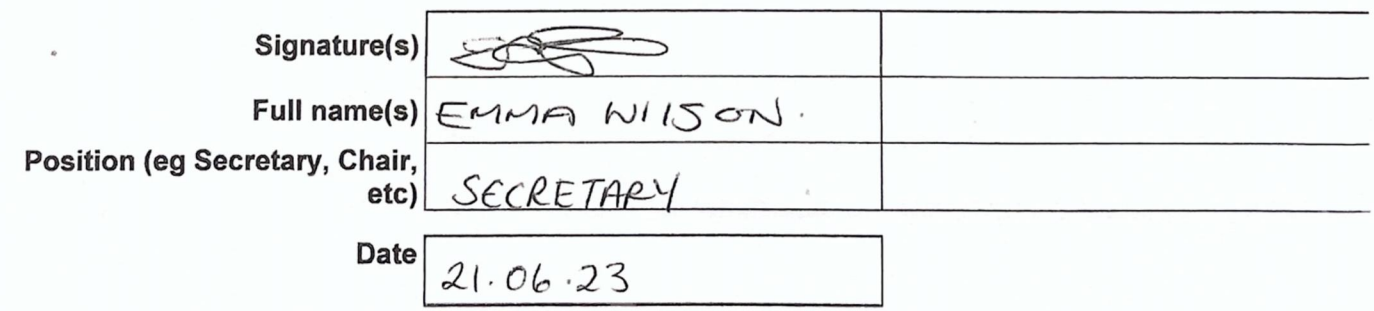 Signature(s)
Full name(s) EMMA WILSON.
Position (eg Secretary, Chair,
etc) SECRETARY
Date
21.06.23